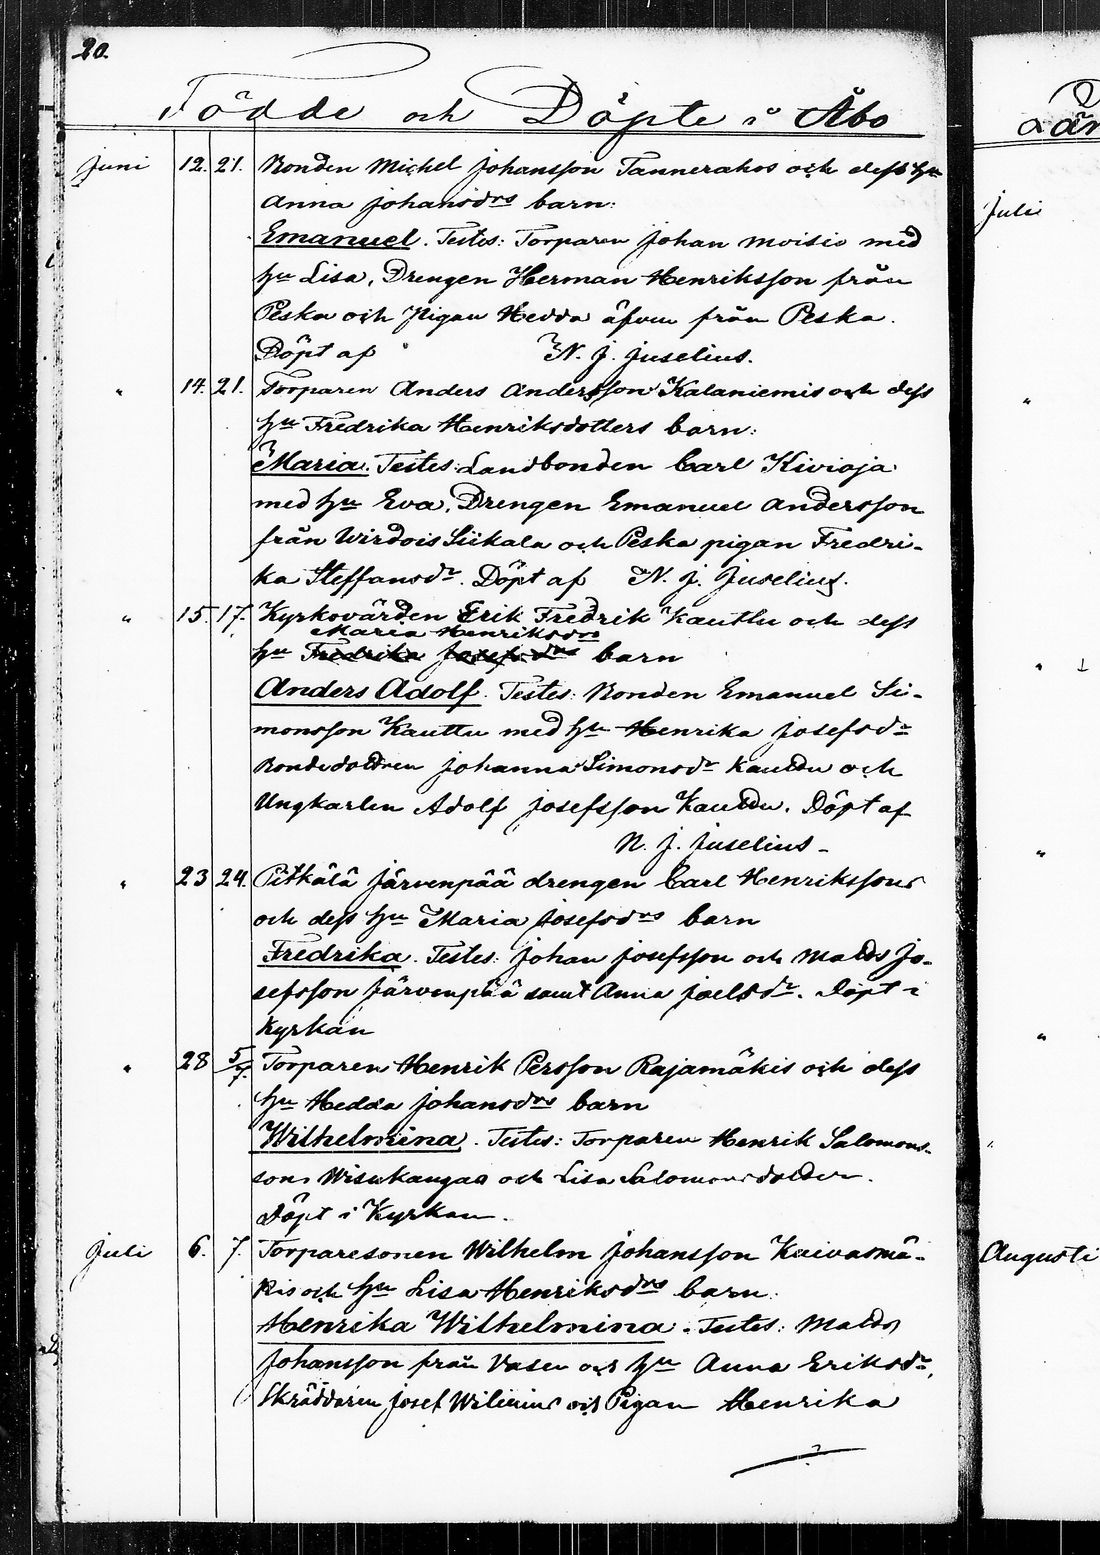 20.
Födde och Döpte i Åbo
Län
Juni 12. 21. Bonden Michel Johansson Tannerahos och dess hu
Anna Johansdrs barn:
Emanuel. Testes: Torparen Johan Moisio med
hu Lisa, Drengen Herman Henriksson från
Peska och Pigan Hedda äfven från Peska.
Döpt af N. J. Juselius.
" 14. 21. Torparen Anders Andersson Kalaniemis och dess
hu Fredrika Henriksdotters barn:
Maria. Testes: Landbonden Carl Kivioja
med hu Eva, Drengen Emanuel Andersson
från Wirdois Siikala och Peska pigan Fredri-
ka Steffansdr. Döpt af N. J. Juselius.
" 15. 17. Kyrkovärden Erik Fredrik Kauttu och dess
Maria Henriksdrs
hu Fredrika Josefsdrs barn
Anders Adolf. Testes: Bonden Emanuel Si-
monsson Kauttu med hu Henrika Josefsdr
Bondedottren Johanna Simonsdr Kauttu och
Ungkarlen Adolf Josefsson Kauttu. Döpt af
N. J. Juselius -
" 23 24. Pitkälä Järvenpää drengen Carl Henrikssons
och dess hu Maria Josefsdrs barn
Fredrika. Testes: Johan Josefsson och Matts Jo-
sefsson Järvenpää samt Anna Joelsdr. Döpt i
Kyrkan
" 28 5/7. Torparen Henrik Persson Rajamäkis och dess
hu Hedda Johansdrs barn
Wilhelmina. Testes: Torparen Henrik Salomons-
son Wisukangas och Lisa Salomonsdotter.
Döpt i Kyrkan.
Juli 6. 7. Torparesonen Wilhelm Johansson Kaivosmä-
kis och hu Lisa Henriksdrs barn:
Henrika Wilhelmina. Testes: Matts
Johansson från Vasen och hu Anna Eriksdr,
Skräddaren Josef och Pigan Henrika
Juli
"
"
"
"
Augusti